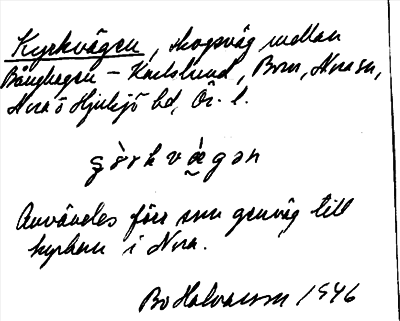 Kyrkvägen, skogsväg mellan
Bånghagen – Karlslund, Born, Nora sn,
Nora o Hjulsjö bd, Ör. l.
Användes förr som genväg till
kyrkan i Nora.
Bo Halvarsson 1946